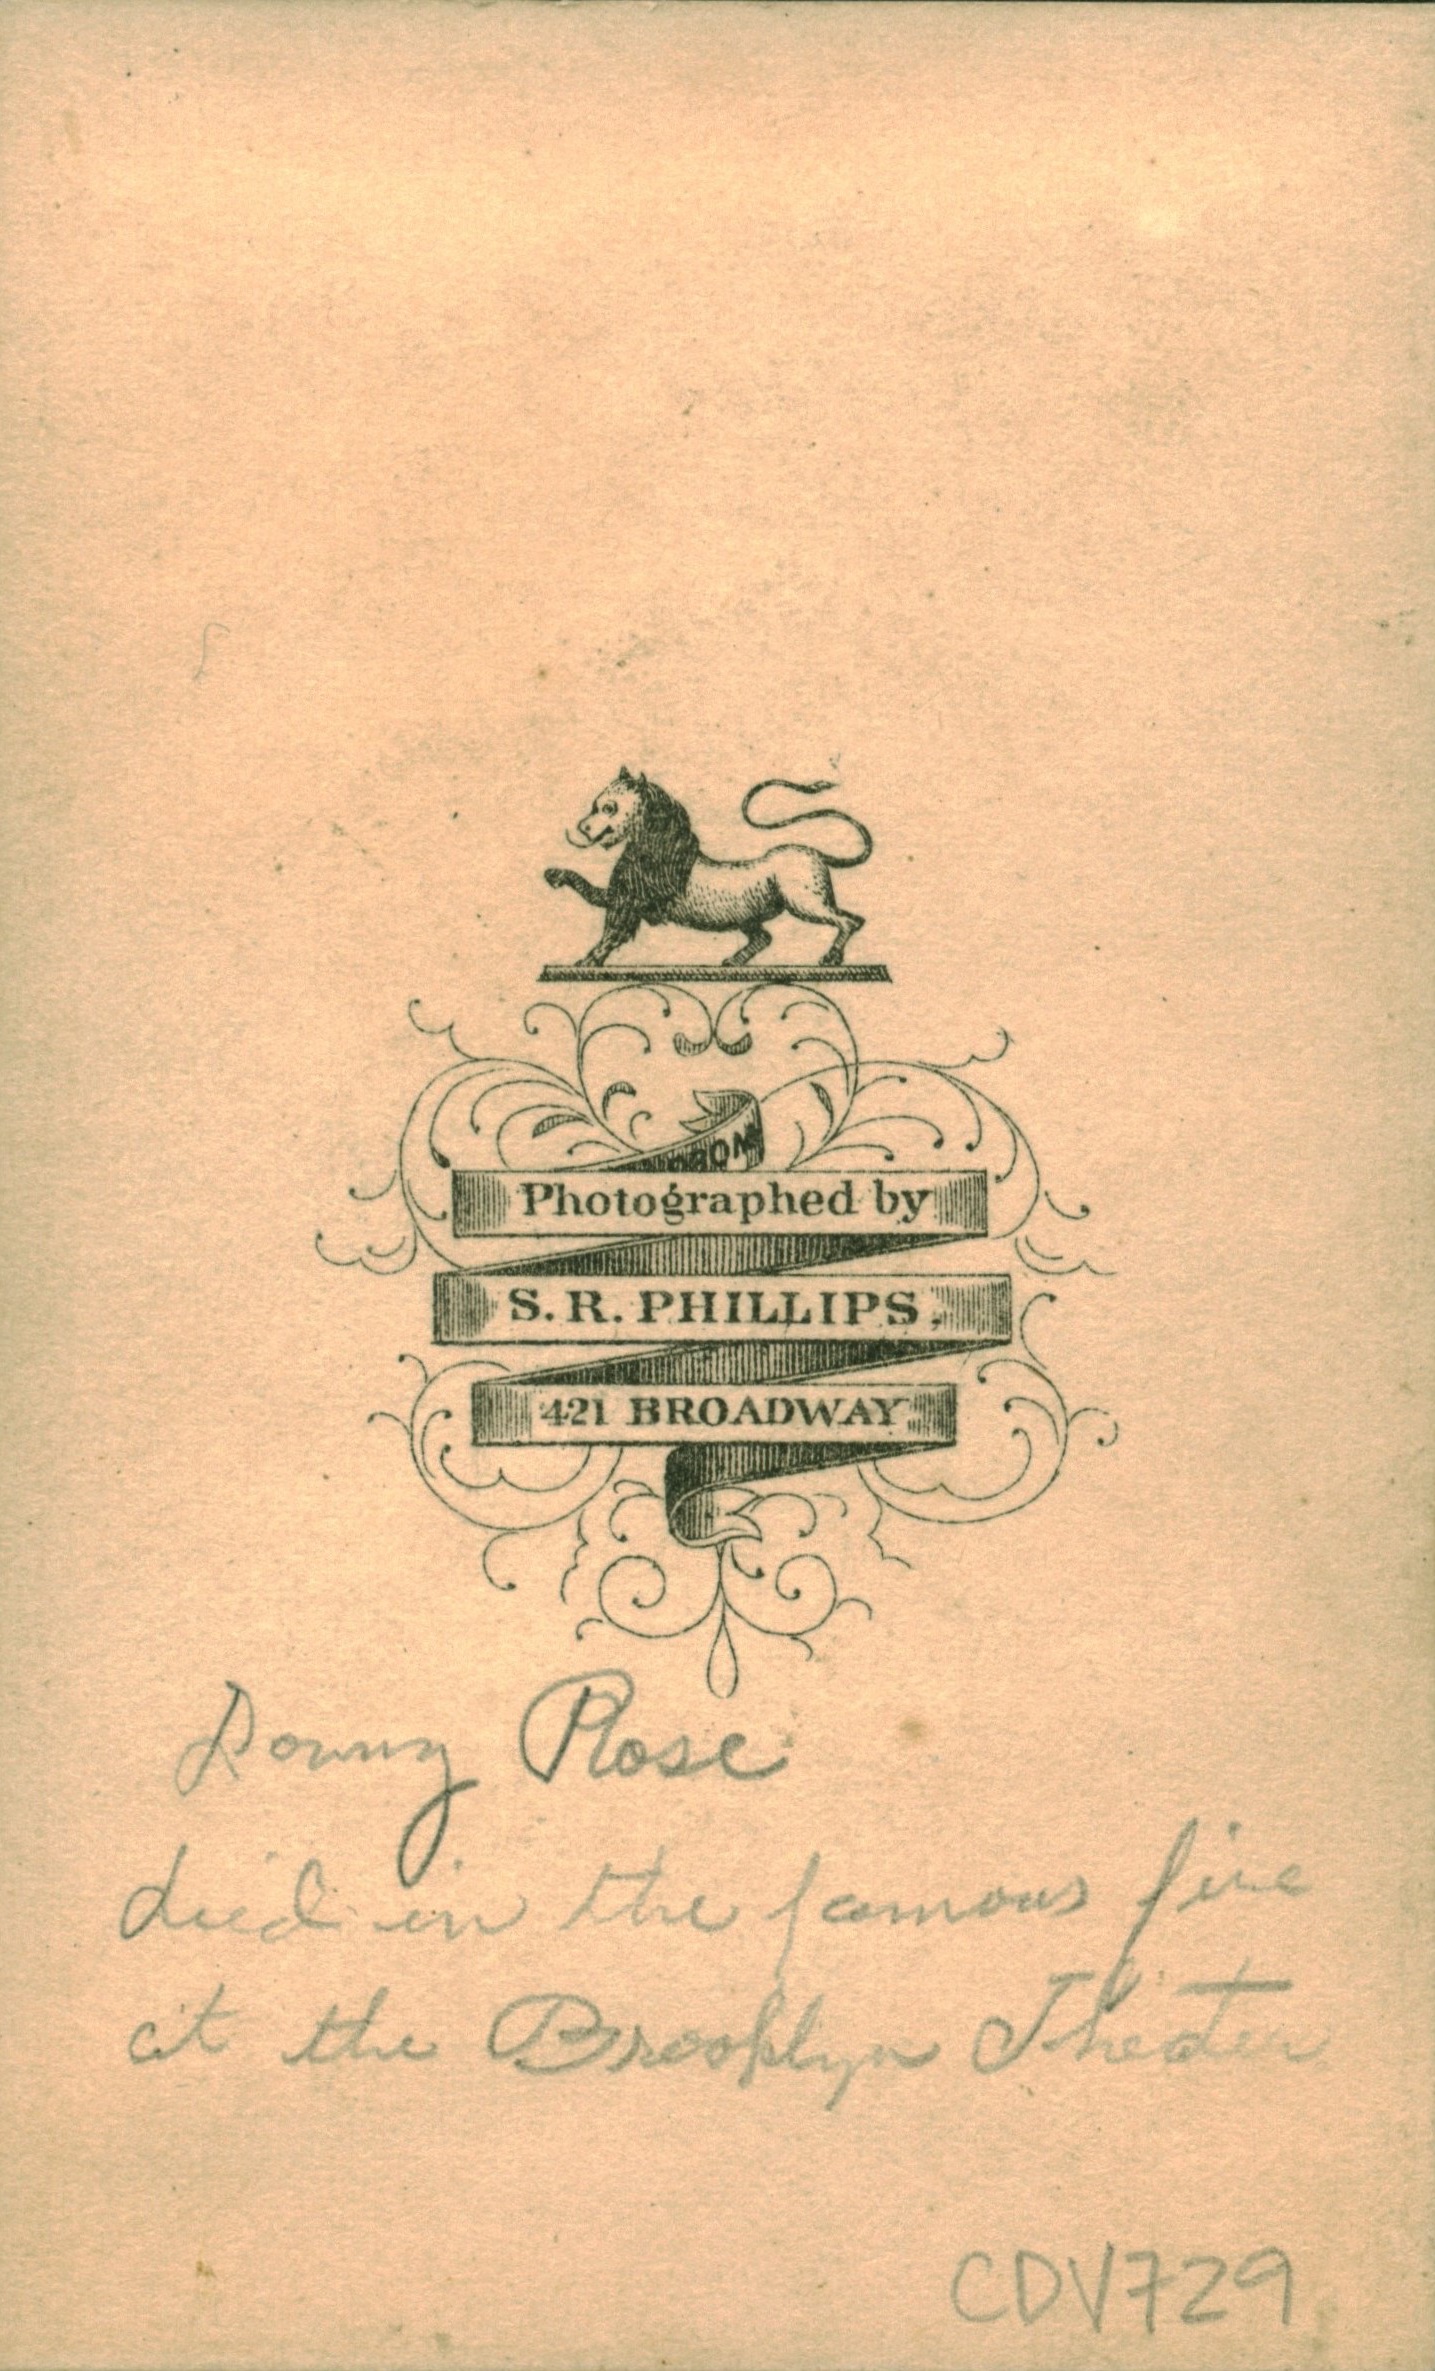 Photographed by
S. R. PHILLIPS,
421 BROADWAY.
Rose
died in the famous fire
at the Brooklyn Theater
CDV729